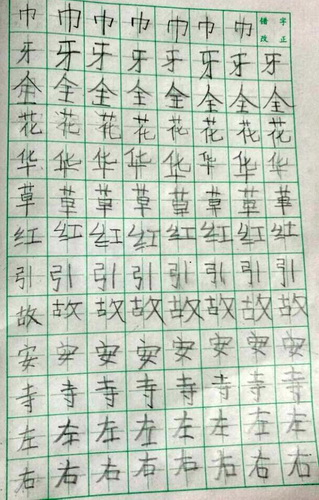 巾巾巾巾巾巾巾 错字
改正
牙牙牙牙牙牙牙牙
全全全全全全全全
花花花花花花花花
华华华华华华华华
草草草草草草草草
红红红红红红红红
引引引引引引引引
故故故故故故故故
安安安安安安安安
寺寺寺寺寺寺寺寺
左左左左左左左左
右右右右右右右右